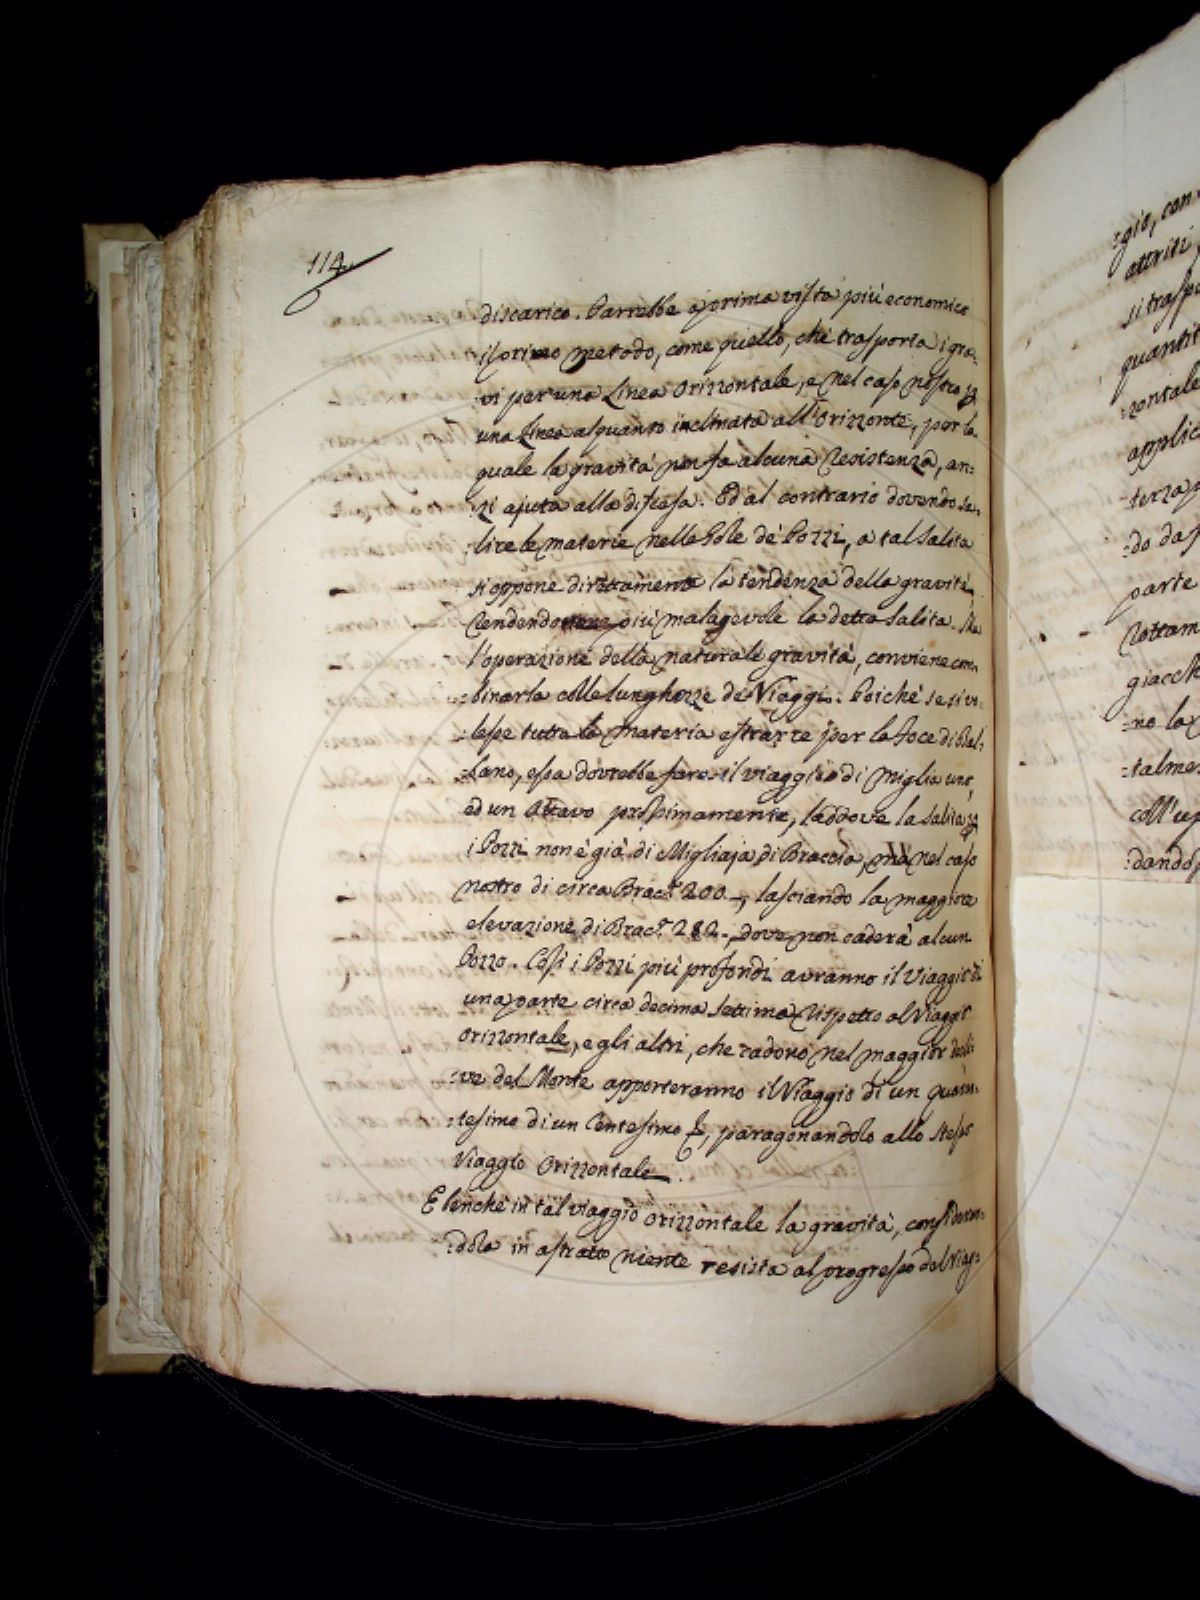 114.
discarico. Parrebbe a prima vista più economico
il primo metodo, come quello, che trasporta i gra-
vi per una Linea Orizzontale, e nel caso nostro p
una Linea alquanto inclinata all'Orizzonte, per la
quale la gravità non fa alcuna resistenza, an=
zi ajuta alla discesa. Ed al contrario dovendo sa=
:lire le materie nelle Gole de' Pozzi, a tal Salita
si oppone direttamente la tendenza della gravità,
rendendo più malagevole la detta Salita. Ma
l'operazione della naturale gravità, conviene com=
:binarla colle lunghezze de' Viaggi. Poichè se si vo=
:lesse tutta la materia estrarre per la Foce di Bal=
:bano, essa dovrebbe fare il viaggio di Miglia uno,
ed un Ottavo prossimamente, laddove la Salita p
i Pozzi non è già di Migliaja di Braccia, ma nel caso
nostro di circa Bracc.ª 200 -, lasciando la maggiore
elevazione di Bracc.ª 282 -, dove non caderà alcun
Pozzo. Così i Pozzi più profondi avranno il Viaggio di
una parte circa decima settima rispetto al Viaggio
Orizzontale, e gli altri, che cadono nel maggior decli
:ve del Monte apporteranno il Viaggio di un quaran=
:tesimo di un Centesimo &, paragonandolo allo stesso
Viaggio Orizzontale.
E benchè in tal viaggio orizzontale la gravità, consideran=
:dola in astratto niente resista al progresso del Viag=
:gio, con
attriti
si traspo
quantit
:zontale
applic
terza p
:do da
parte
rottam
giacch
:no la
:talme
coll'up
:dando